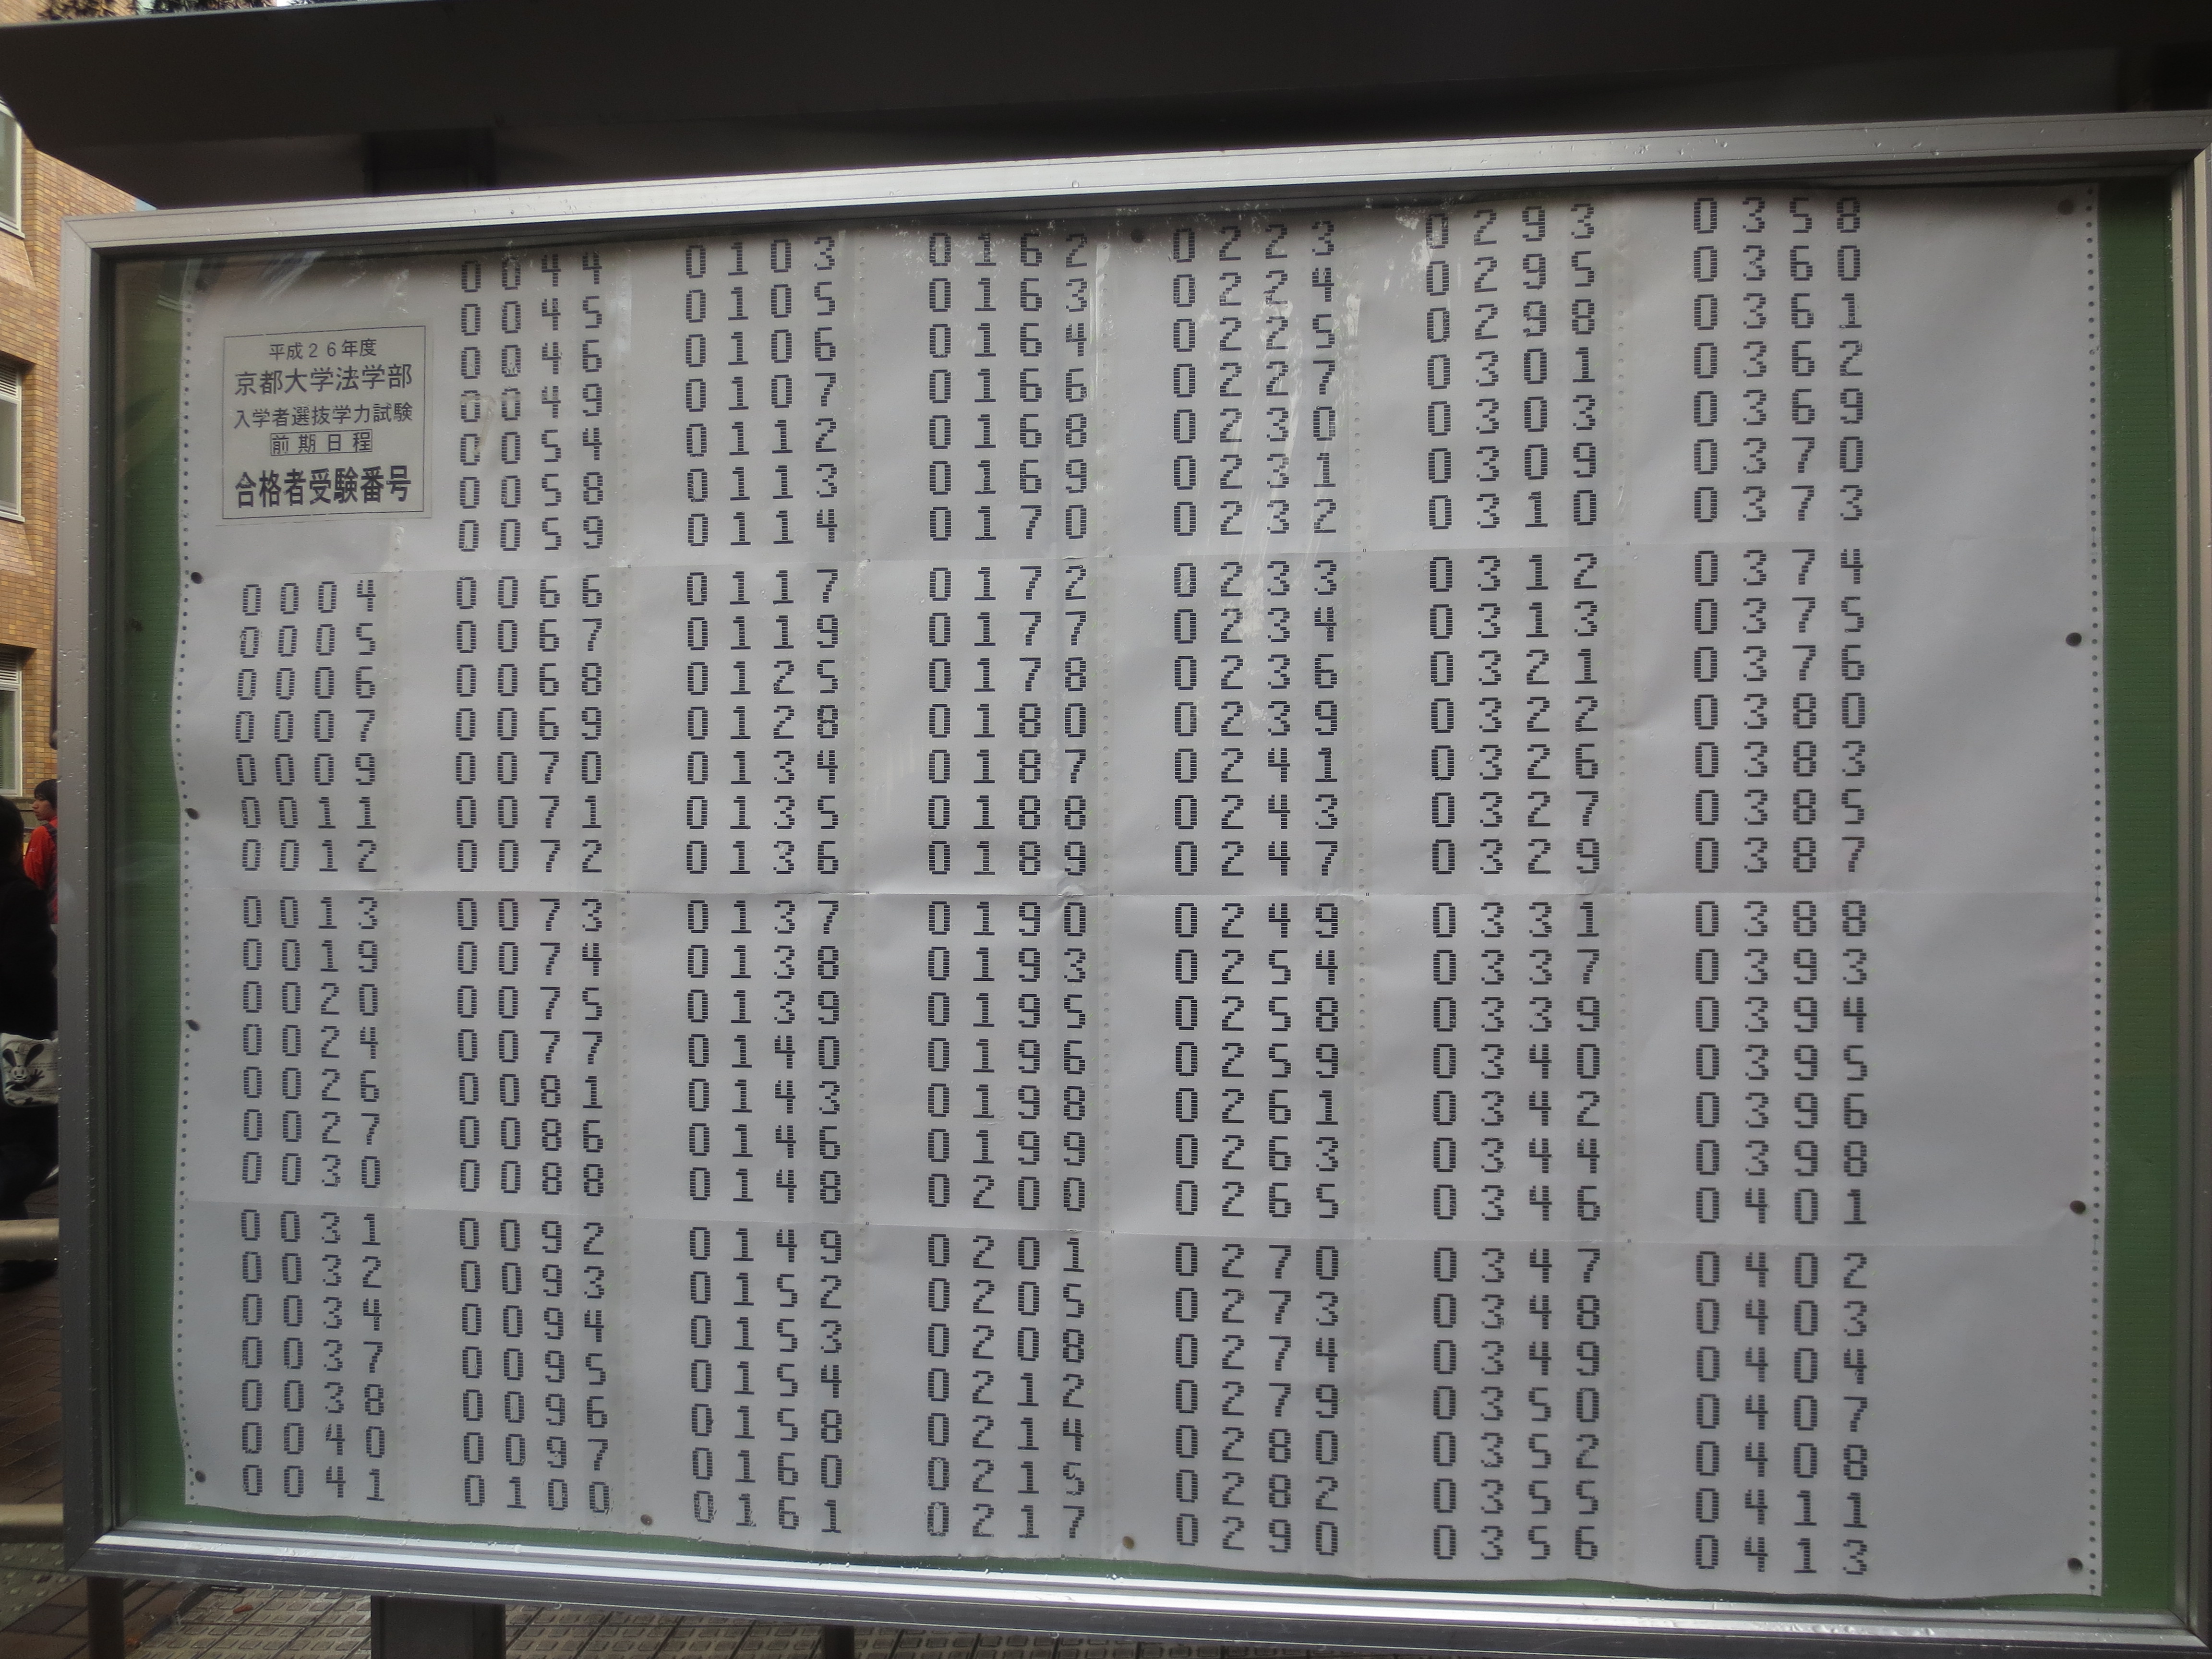 平成26年度
京都大学法学部
入学者選抜学力試験
前期日程
合格者受験番号
0004
0005
0006
0007
0009
0011
0012
0013
0019
0020
0024
0026
0027
0030
0031
0032
0034
0037
0038
0040
0041
0044
0045
0046
0049
0054
0058
0059
0066
0067
0068
0069
0070
0071
0072
0073
0074
0075
0077
0081
0086
0088
0092
0093
0094
0095
0096
0097
0100
0103
0105
0106
0107
0112
0113
0114
0117
0119
0125
0128
0134
0135
0136
0137
0138
0139
0140
0143
0146
0148
0149
0152
0153
0154
0158
0160
0161
0162
0163
0164
0166
0168
0169
0170
0172
0177
0178
0180
0187
0188
0189
0190
0193
0195
0196
0198
0199
0200
0201
0205
0208
0212
0214
0215
0217
0223
0224
0225
0227
0230
0231
0232
0233
0234
0236
0239
0241
0243
0247
0249
0254
0258
0259
0261
0263
0265
0270
0273
0274
0279
0280
0282
0290
0293
0295
0298
0301
0303
0309
0310
0312
0313
0321
0322
0326
0327
0329
0331
0337
0339
0340
0342
0344
0346
0347
0348
0349
0350
0352
0355
0356
0358
0360
0361
0362
0369
0370
0373
0374
0375
0376
0380
0383
0385
0387
0388
0393
0394
0395
0396
0398
0401
0402
0403
0404
0407
0408
0411
0413